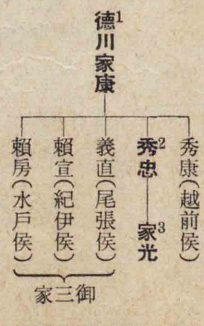 德川家康1
秀康(越前侯)
秀忠2
家光3
義直(尾張侯)
賴宣(紀伊侯)
賴房(水戶侯)
御三家